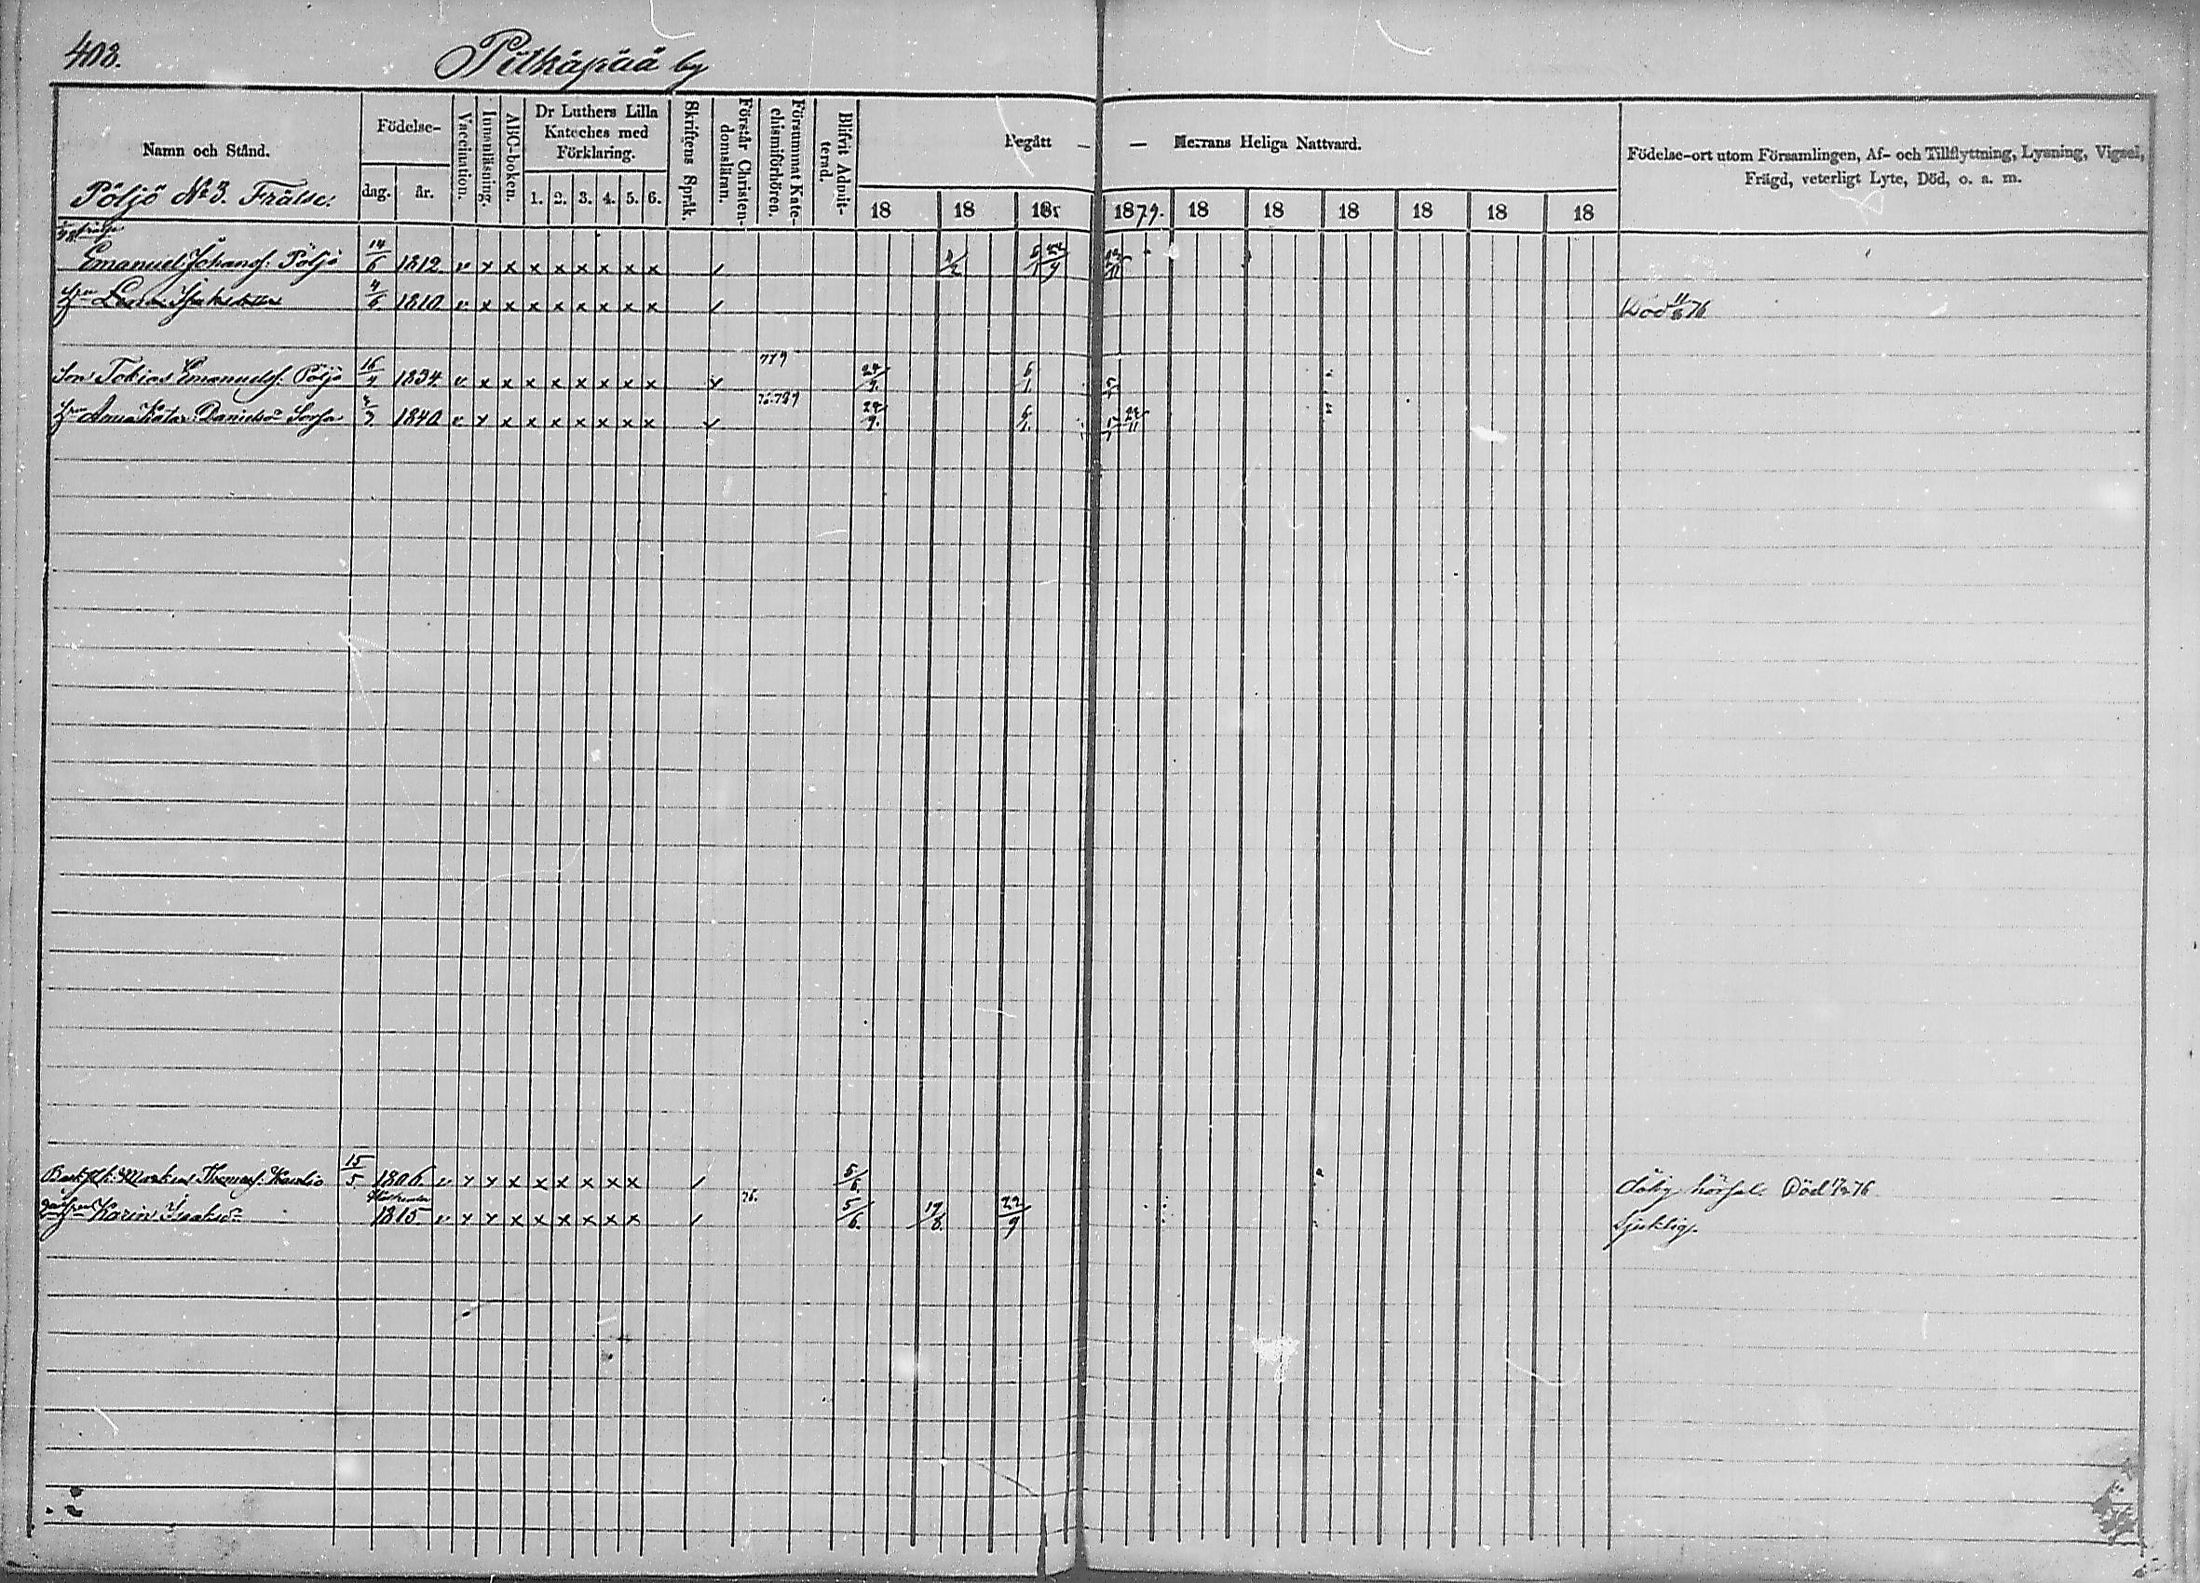 408. Pitkäpää by
Namn och Stånd.
Pöljö No 3. Frälse:
Födelse-
dag. år.
Vaccination.
Innanläsning.
ABC-boken.
Dr Luthers Lilla
Kateches med
Förklaring.
1. 2. 3. 4. 5. 6.
Skriftens Språk.
Förstår Christen-
domsläran.
Försummat Kate-
chismiförhören.
Blifvit Admit-
terad.
Begått — — Herrans Heliga Nattvard.
18 18 18 1879. 18 18 18 18 18 18
Födelse-ort utom Församlingen, Af- och Tillflyttning, Lysning, Vigsel,
Frägd, veterligt Lyte, Död, o. a. m.
Emanuel Johansf. Pöljö 14/6 1812 v x x x x x x x x 22/9 22/11
Hru 4/6 1810 v x x x x x x x x Död 11/8 76
Son Tobias Emanuelsf. Pöljö 16/2 1834 v x x x x x x x x 24/9. 6/1.
Hru Anna Katar. Danielsdr Sorsa 1840 v x x x x x x x x 24/9. 6/1. 24/11
Markus Thomasf. 15/5 1806 v x x x x x x x x 5/6. dålig hörsel. Död 76
Karin Isaksdr 1815 v x x x x x x x x 76. 5/6. 19/8. 22/9 Sjuklig.